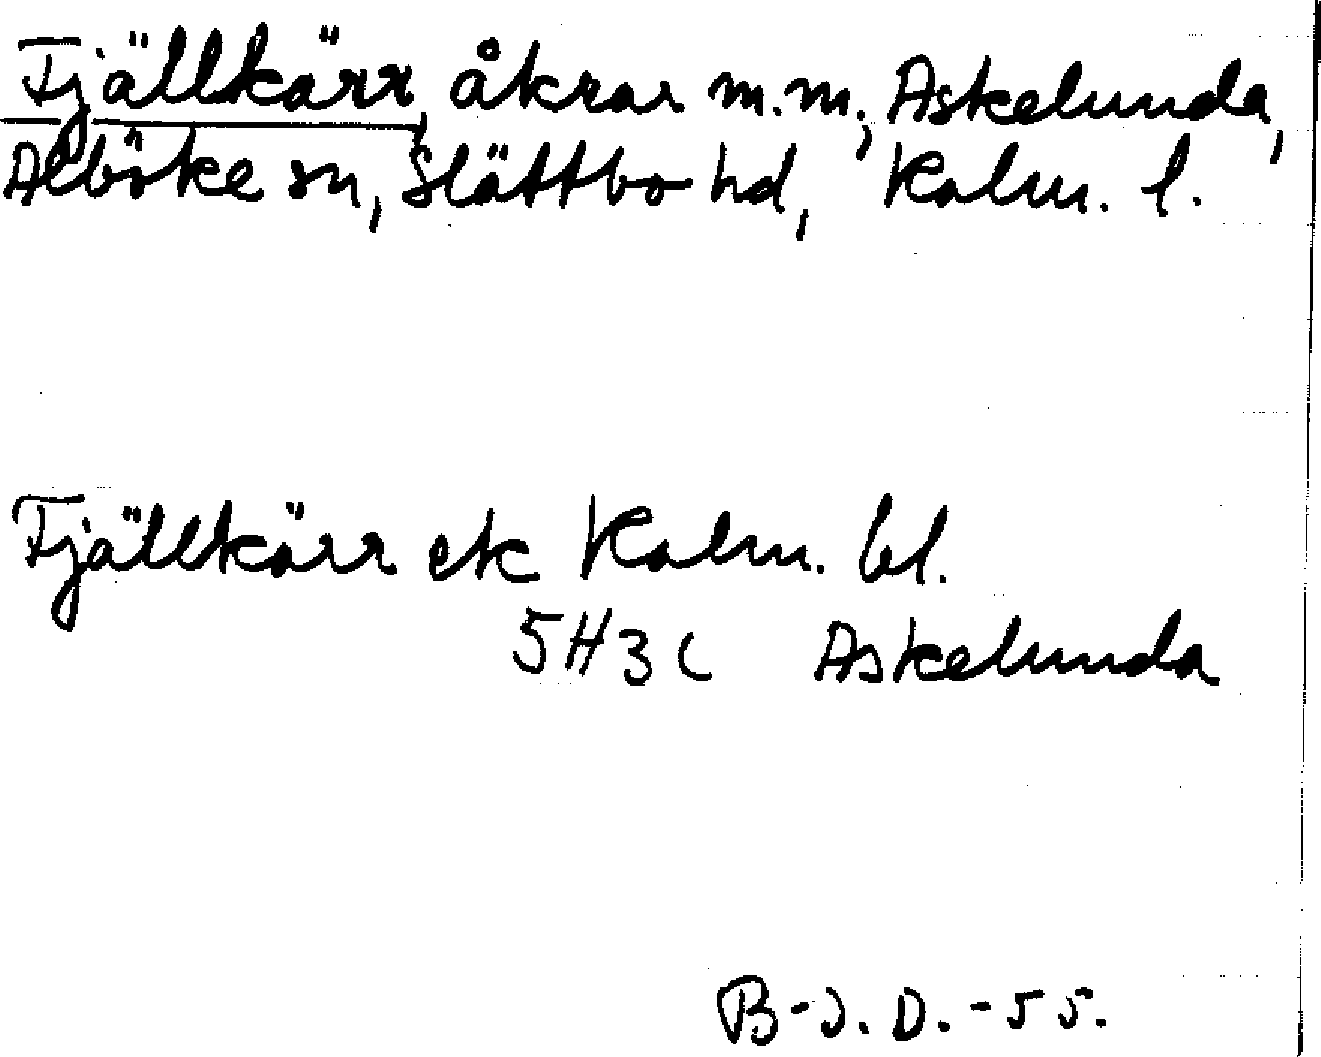 Fjällkärr, åkrar m.m., Askelunda,
Alböke sn, Slättbo hd, Kalm. l.
Fjällkärr ek Kalm. bl.
5H3c Askelunda
B-J.D.-55.